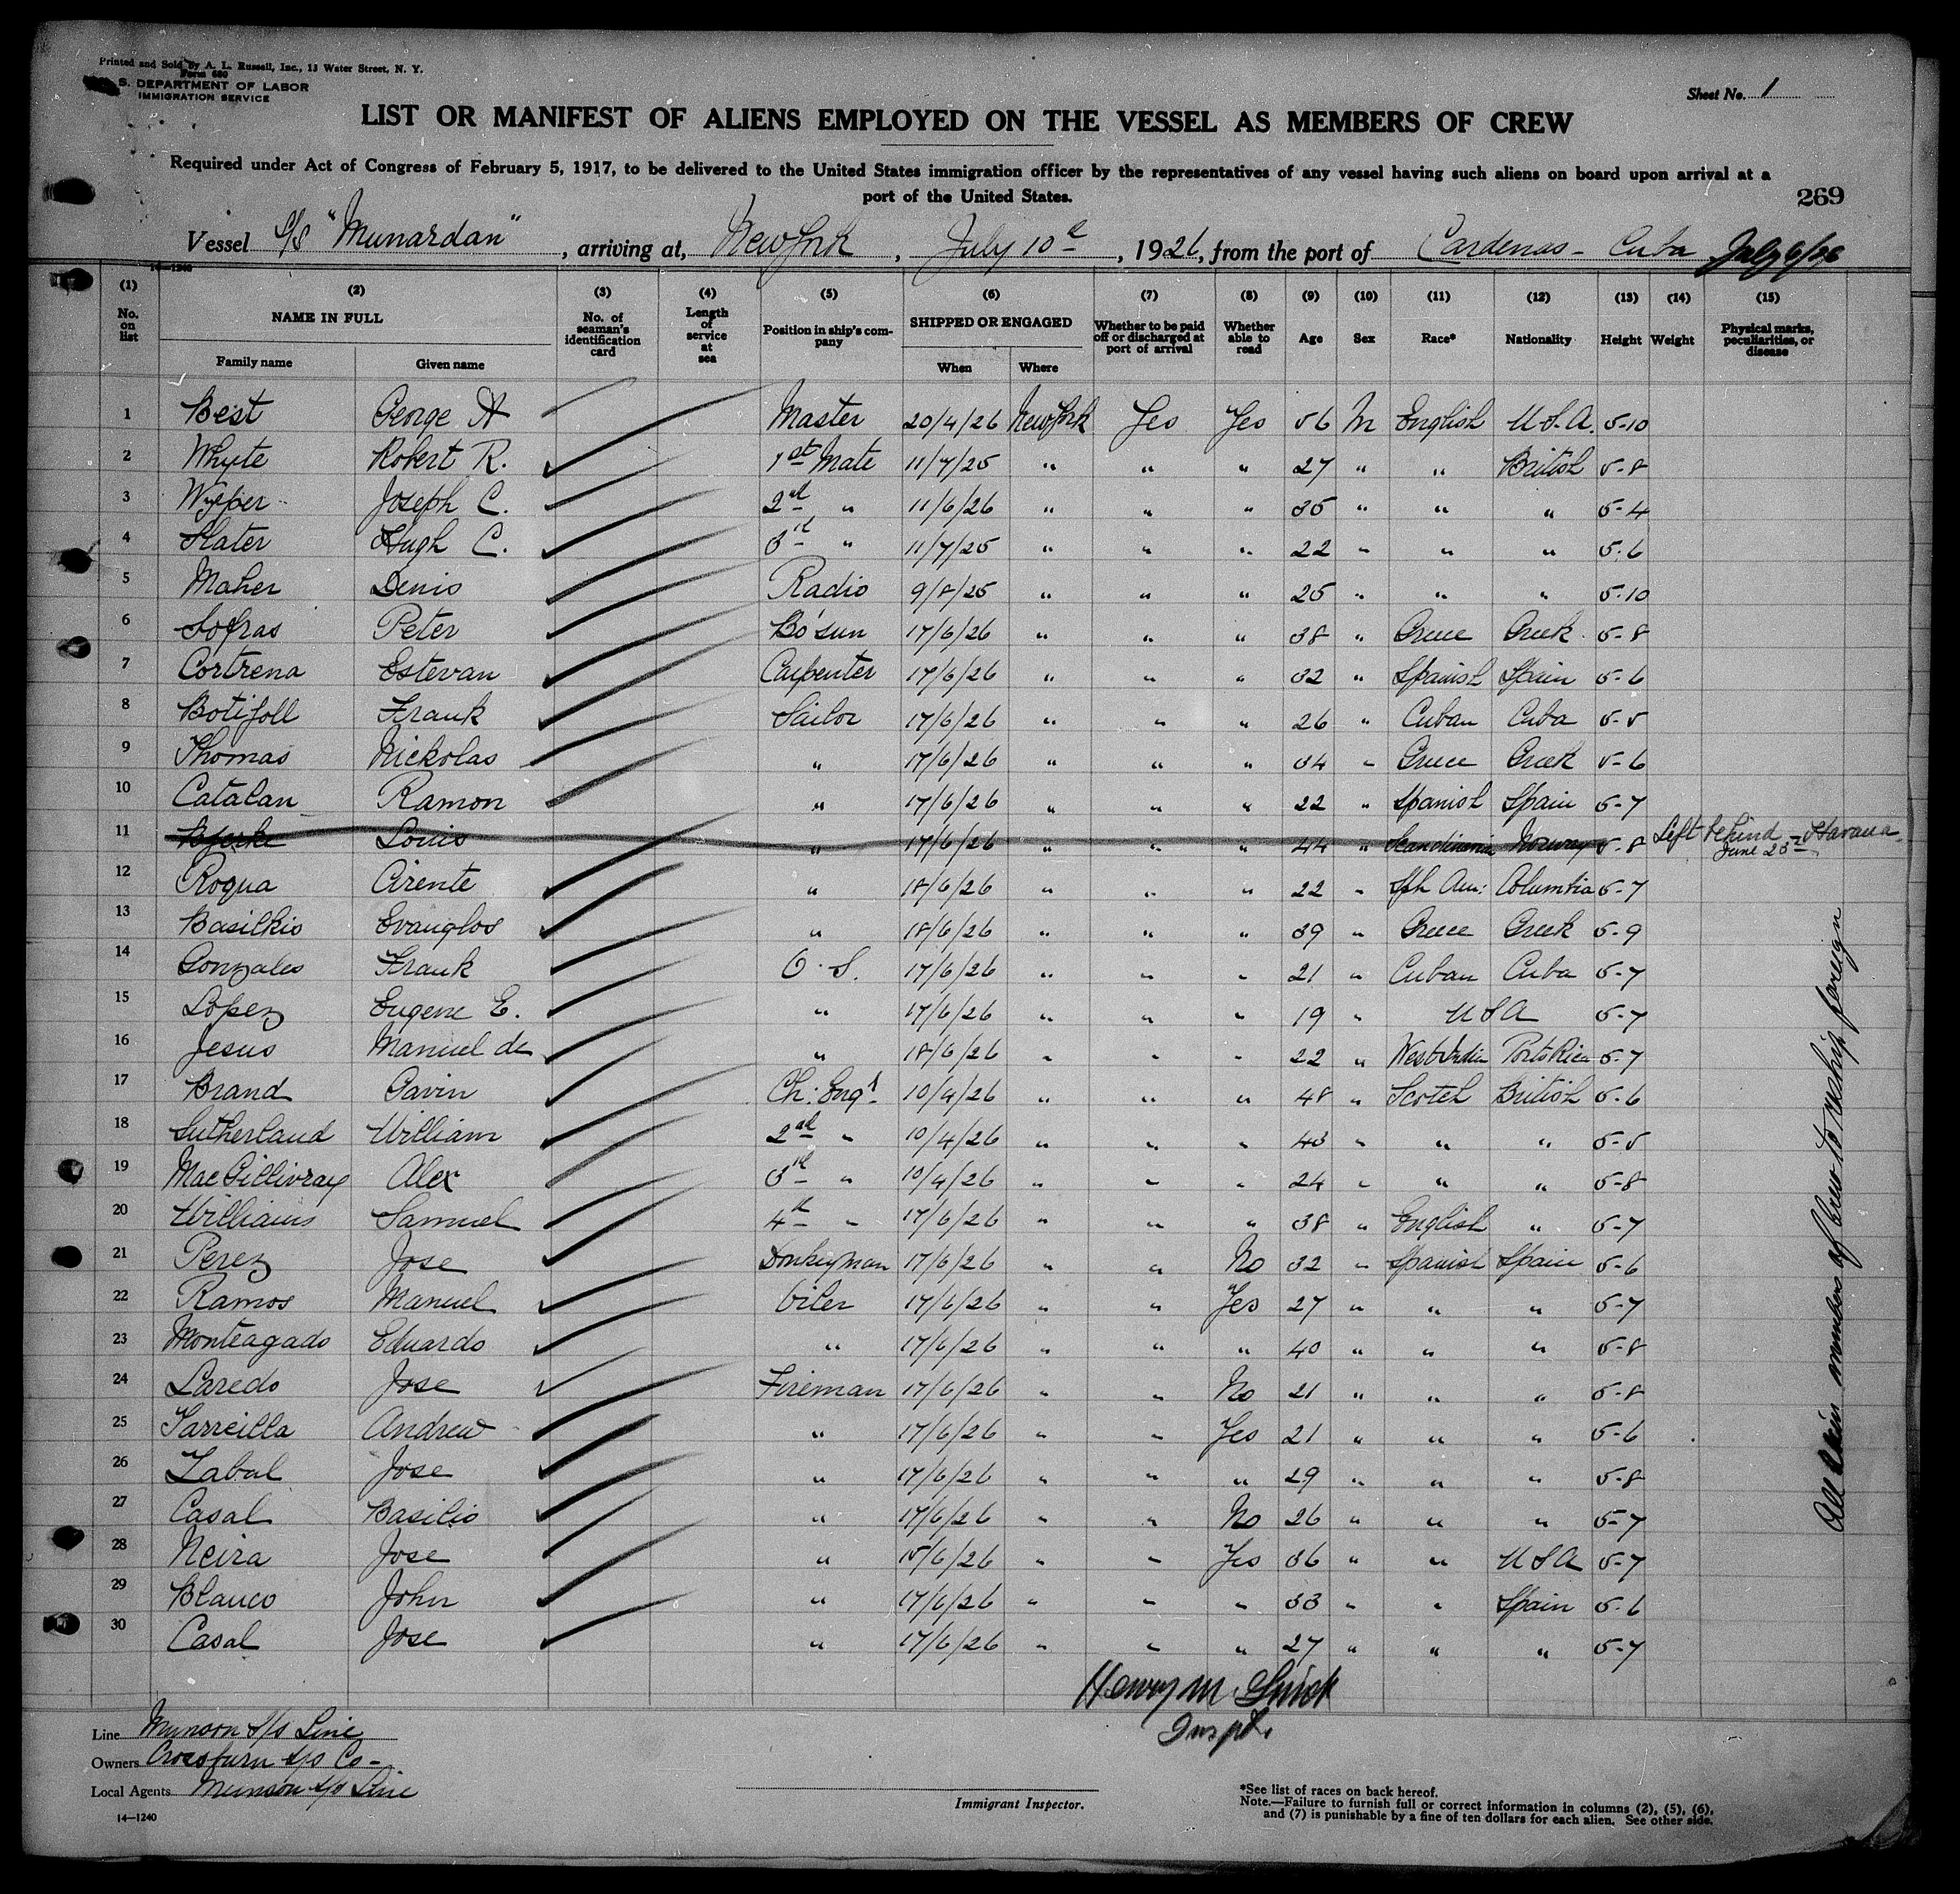 Printed and Sold by A. L. Russell, Inc., 13 Water Street, N. Y.
Form 680
S. DEPARTMENT OF LABOR
IMMIGRATION SERVICE
Sheet No. 1
LIST OR MANIFEST OF ALIENS EMPLOYED ON THE VESSEL AS MEMBERS OF CREW
Required under Act of Congress of February 5, 1917, to be delivered to the United States immigration officer by the representatives of any vessel having such aliens on board upon arrival at a
port of the United States.
269
Vessel S/S "Munardan", arriving at, New York, July 10th, 1926, from the port of Cardenas - Cuba July 6/26
14-1240
(1) (2) (3) (4) (5) (6) (7) (8) (9) (10) (11) (12) (13) (14) (15)
No. on list NAME IN FULL Family name Given name No. of seaman's identification card Length of service at sea Position in ship's company SHIPPED OR ENGAGED When Where Whether to be paid off or discharged at port of arrival Whether able to read Age Sex Race* Nationality Height Weight Physical marks, peculiarities, or disease
1 Best George A Master 20/4/26 New York Yes Yes 56 M English U.S.A. 5-10
2 Whyte Robert R. 1st Mate 11/7/25 " " " 27 " " British 5-8
3 Wylper Joseph C. 2nd " 11/6/26 " " " 35 " " " 5-4
4 Slater Hugh C. 3rd " 11/7/25 " " " 22 " " " 5-6
5 Maher Denis Radio 9/8/25 " " " 25 " " " 5-10
6 Sofras Peter Bo'sun 17/6/26 " " " 38 " Greece Greek 5-8
7 Cortrena Estevan Carpenter 17/6/26 " " " 32 " Spanish Spain 5-6
8 Botifoll Frank Sailor 17/6/26 " " " 26 " Cuban Cuba 5-5
9 Thomas Nickolas " 17/6/26 " " " 34 " Greece Greek 5-6
10 Catalan Ramon " 17/6/26 " " " 22 " Spanish Spain 5-7
11 Bjerke Louis " 17/6/26 " " " 44 " Scandinavia Norway 5-8 Left behind - Havana
June 23rd
12 Roqua Cirente " 18/6/26 " " " 22 " Sth Am: Columbia 5-7
13 Basilkis Evanglos " 18/6/26 " " " 39 " Greece Greek 5-9
14 Gonzales Frank O.S. 17/6/26 " " " 21 " Cuban Cuba 5-7
15 Lopez Eugene E. " 17/6/26 " " " 19 " U S A 5-7
16 Jesus Manuel de " 18/6/26 " " " 22 " West India Porto Rica 5-7
17 Brand Gavin Ch. Engr 10/4/26 " " " 48 " Scotch British 5-6
18 Sutherland William 2nd " 10/4/26 " " " 43 " " " 5-5
19 MacGillivray Alex 3rd " 10/4/26 " " " 24 " " " 5-8
20 Williams Samuel 4th " 17/6/26 " " " 38 " English " 5-7
21 Perez Jose Donkeyman 17/6/26 " " No 32 " Spanish Spain 5-6
22 Ramos Manuel Oiler 17/6/26 " " Yes 27 " " " 5-7
23 Monteagado Eduardo " 17/6/26 " " " 40 " " " 5-8
24 Laredo Jose Fireman 17/6/26 " " No 21 " " " 5-8
25 Sarreilla Andrew " 17/6/26 " " Yes 21 " " " 5-6
26 Zabal Jose " 17/6/26 " " " 29 " " " 5-8
27 Casal Basilio " 17/6/26 " " No 26 " " " 5-7
28 Neira Jose " 15/6/26 " " Yes 36 " " U S A 5-7
29 Blanco John " 17/6/26 " " " 33 " " Spain 5-6
30 Casal Jose " 17/6/26 " " " 27 " " " 5-7
All members of Crew to reship foreign
Henry M.
Inspt.
Line Munson S/S Line
Owners Crossburn S/S Co-
Local Agents Munson S/S Line
14—1240
Immigrant Inspector.
*See list of races on back hereof.
Note.—Failure to furnish full or correct information in columns (2), (5), (6),
and (7) is punishable by a fine of ten dollars for each alien. See other side.